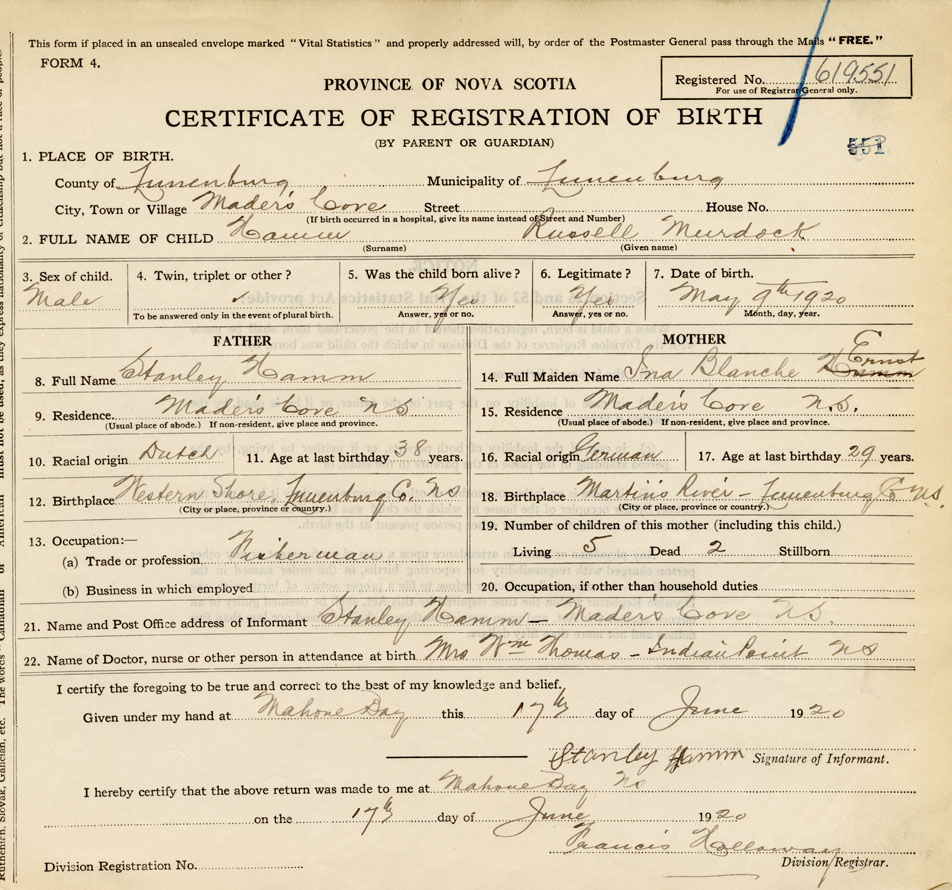 This form if placed in an unsealed envelope marked "Vital Statistics" and properly addressed will, by order of the Postmaster General pass through the Mails "FREE."
FORM 4.
Registered No. 619551
For use of Registrar General only.
PROVINCE OF NOVA SCOTIA
CERTIFICATE OF REGISTRATION OF BIRTH
(BY PARENT OR GUARDIAN)
551
1. PLACE OF BIRTH.
County of Lunenburg Municipality of Lunenburg
City, Town or Village Mader's Cove Street House No.
(If birth occurred in a hospital, give its name instead of Street and Number)
2. FULL NAME OF CHILD Hamm Russell Murdock
(Surname) (Given name)
3. Sex of child. 4. Twin, triplet or other? 5. Was the child born alive? 6. Legitimate? 7. Date of birth.
Male Yes Yes May 9th 1920
To be answered only in the event of plural birth. Answer, yes or no. Answer, yes or no. Month, day, year.
FATHER
8. Full Name Stanley Hamm
9. Residence. Mader's Cove NS
(Usual place of abode.) If non-resident, give place and province.
10. Racial origin Dutch 11. Age at last birthday 38 years.
12. Birthplace Western Shore, Lunenburg Co. NS
(City or place, province or country.)
13. Occupation:—
(a) Trade or profession Fisherman
(b) Business in which employed
MOTHER
14. Full Maiden Name Ina Blanche Hamm Ernst
15. Residence Mader's Cove N.S.
(Usual place of abode.) If non-resident, give place and province.
16. Racial origin German 17. Age at last birthday 29 years.
18. Birthplace Martin's River - Lunenburg Co NS.
(City or place, province or country.)
19. Number of children of this mother (including this child.)
Living 5 Dead 2 Stillborn
20. Occupation, if other than household duties
21. Name and Post Office address of Informant Stanley Hamm - Mader's Cove NS.
22. Name of Doctor, nurse or other person in attendance at birth Mrs Wm Thomas - Indian Point NS
I certify the foregoing to be true and correct to the best of my knowledge and belief.
Given under my hand at Mahone Bay this 17th day of June 1920
Stanley Hamm Signature of Informant.
I hereby certify that the above return was made to me at Mahone Bay NS
on the 17th day of June 1920
Francis Holloway
Division Registration No. Division Registrar.